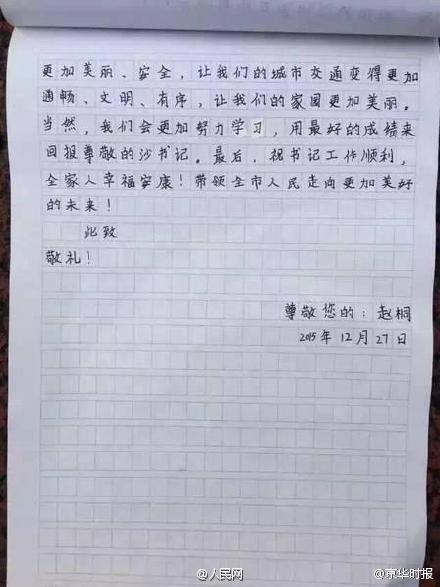 更加美丽、安全，让我们的城市交通变得更加
通畅、文明、有序，让我们的家园更加美丽。
当然，我们会更加努力学习，用最好的成绩来
回报尊敬的沙书记。最后，祝书记工作顺利，
全家人幸福安康！带领全市人民走向更加美好
的未来！
此致
敬礼！
尊敬您的：赵桐
2015年12月27日
@人民网
@京华时报